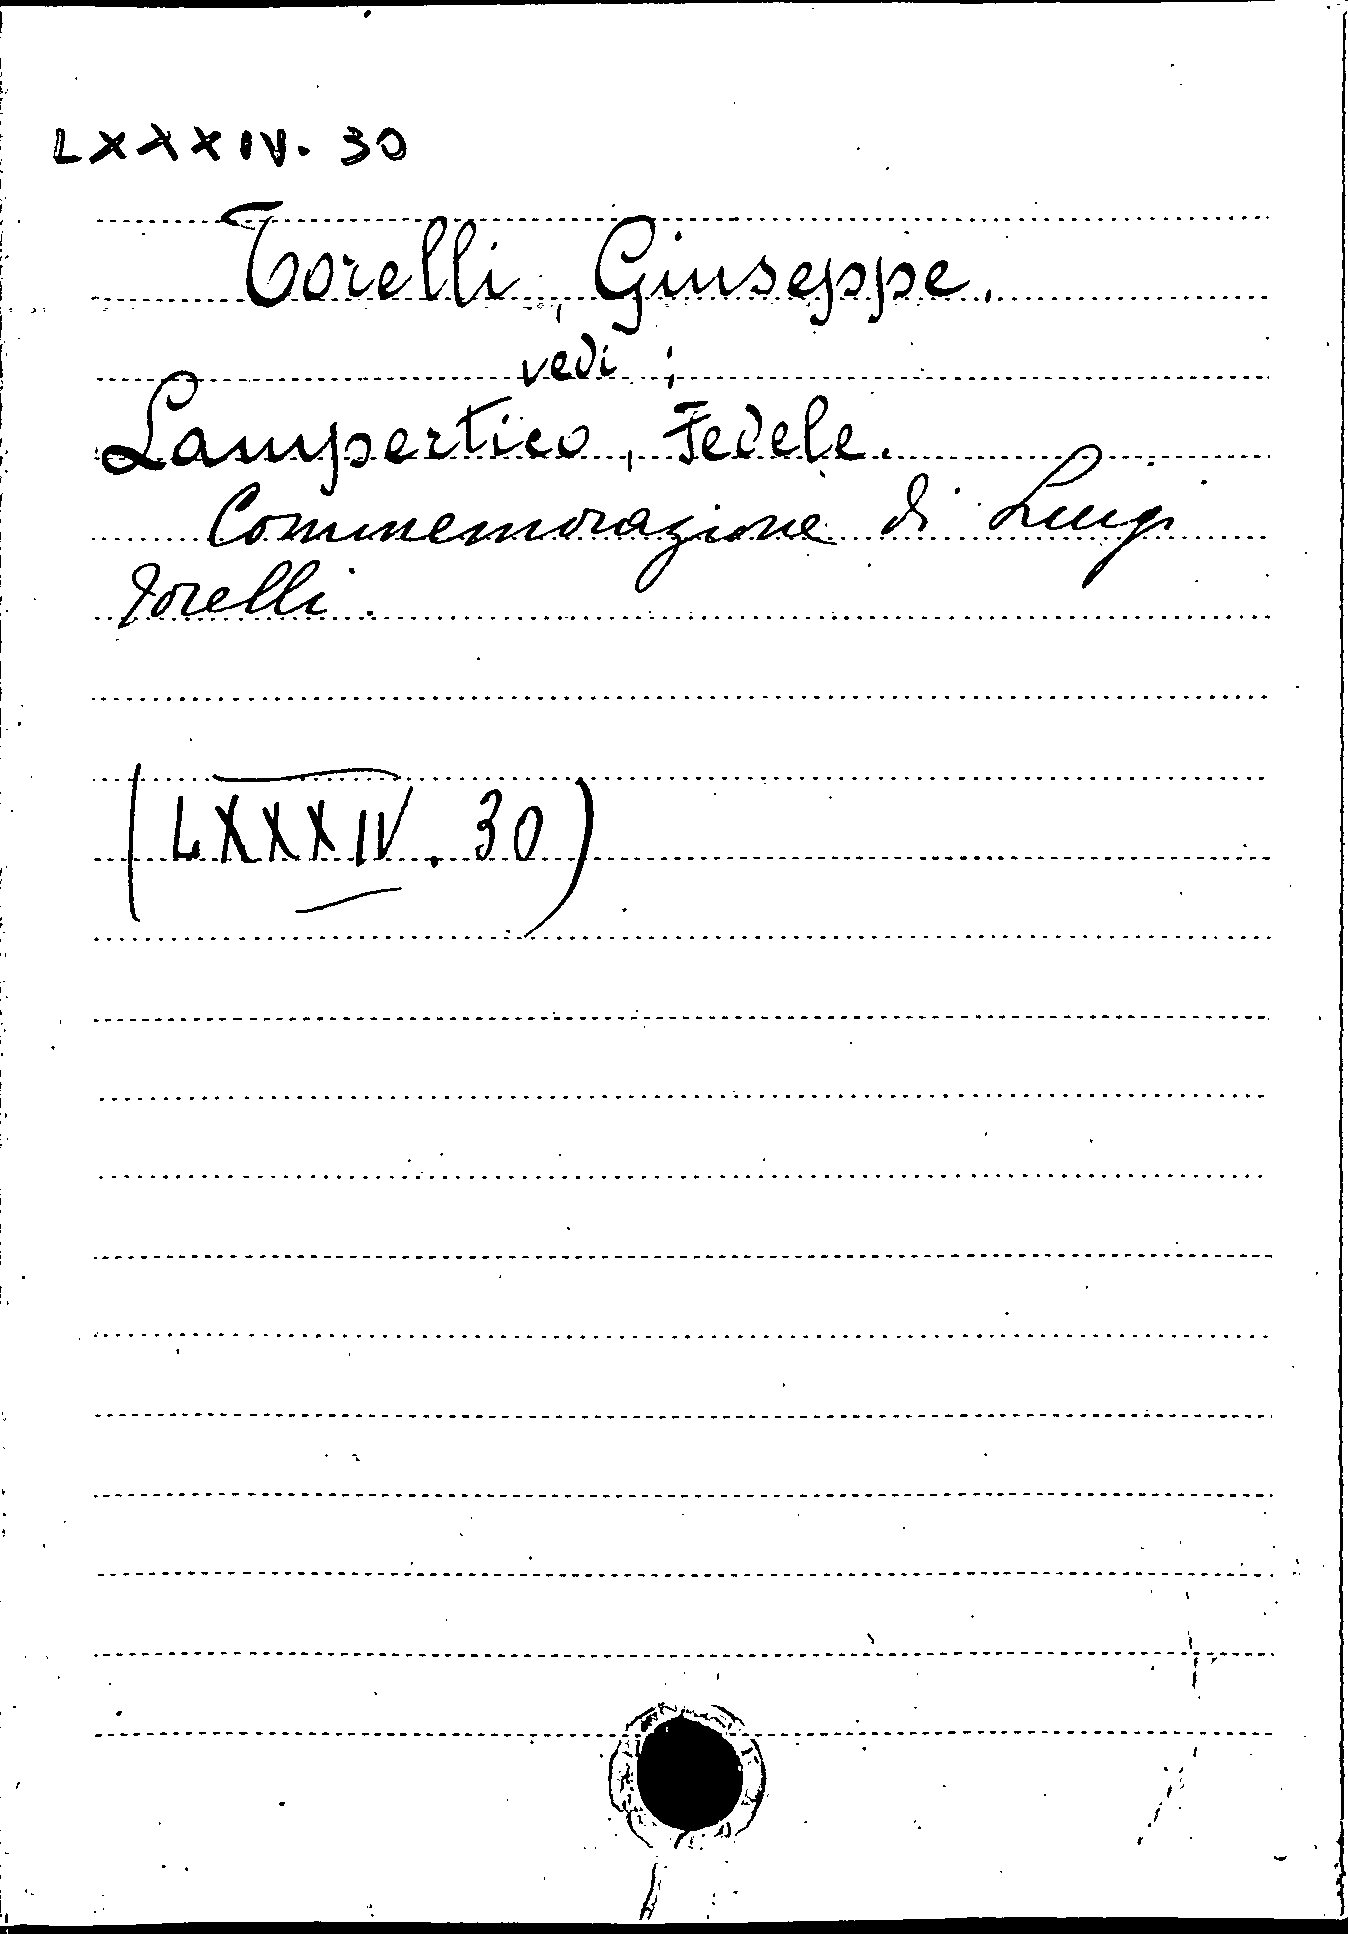 LXXXIV. 30
Torelli, Giuseppe.
vedi:
Lampertico, Fedele.
Commemorazione di Luigi
Torelli.
(LXXXIV. 30)